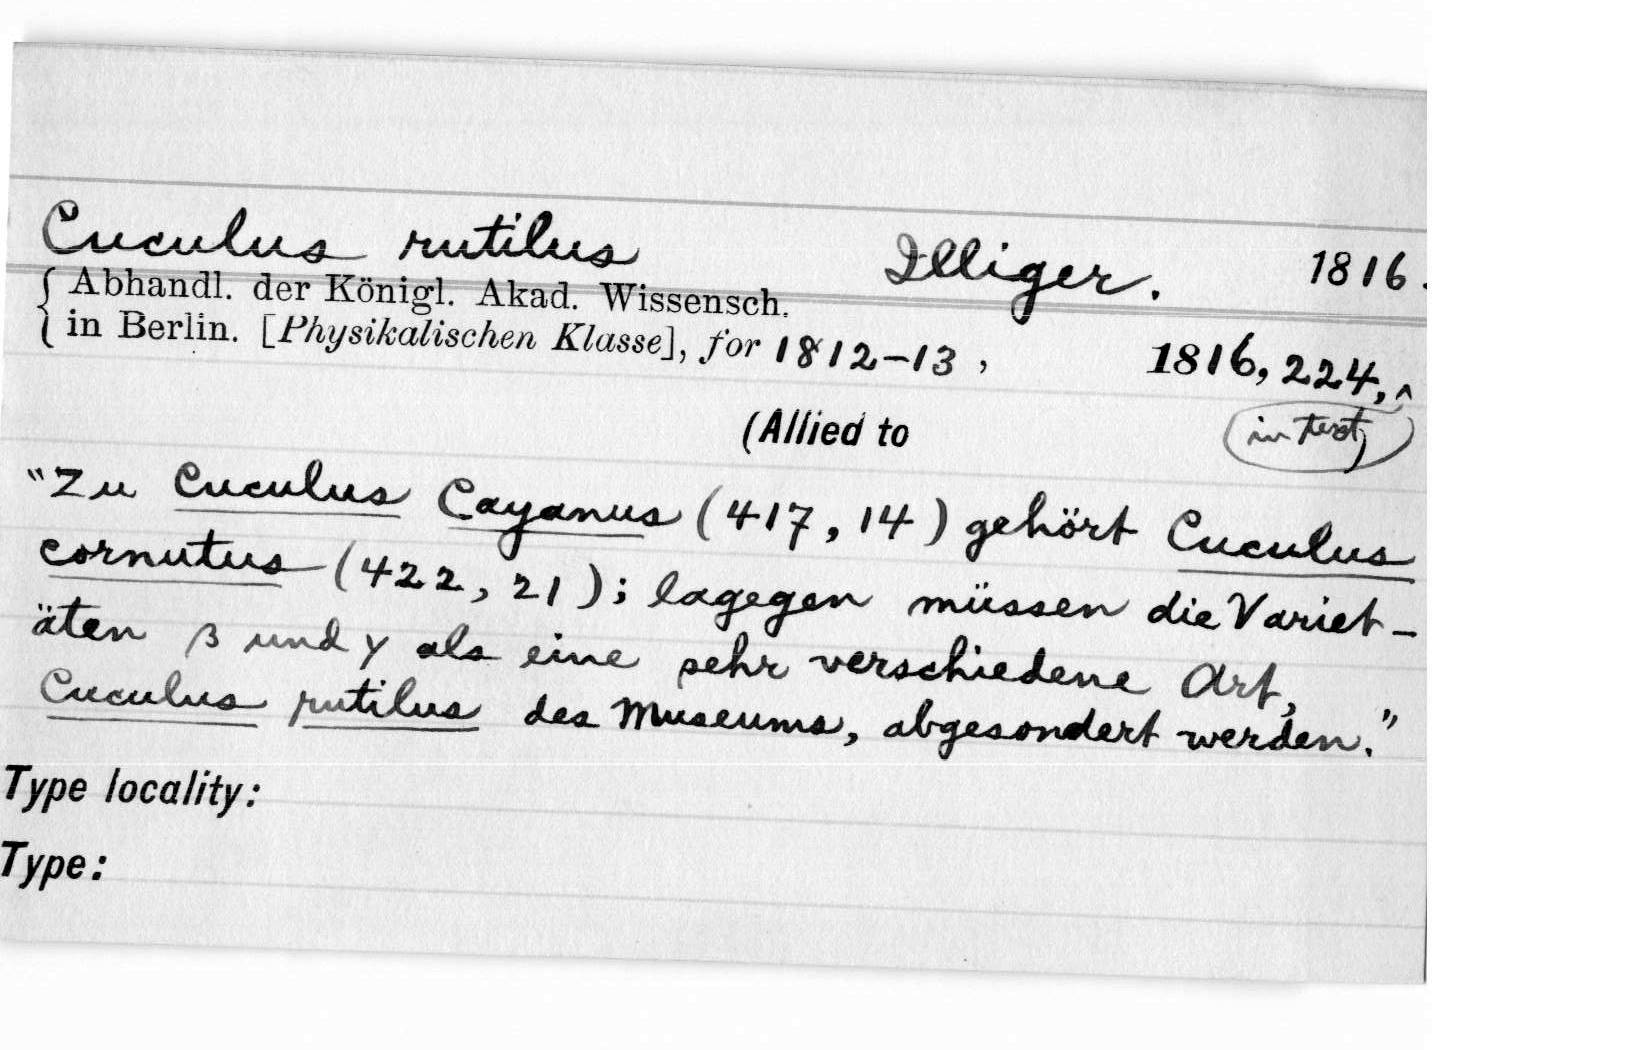 Cuculus rutilus Illiger. 1816.
{ Abhandl. der Königl. Akad. Wissensch.
{ in Berlin. [Physikalischen Klasse], for 1812-13, 1816, 224, ^
(Allied to (in text)
"Zu Cuculus Cayanus (417, 14) gehört Cuculus
cornutus (422, 21); lagegen müssen die Variet-
äten β und γ als eine sehr verschiedene Art,
Cuculus rutilus des Museums, abgesondert werden."
Type locality:
Type: